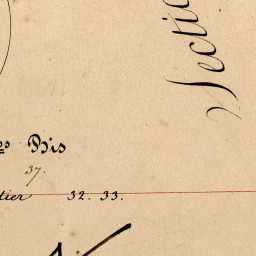 Sectio
os Bis
37.
tier 32. 33.